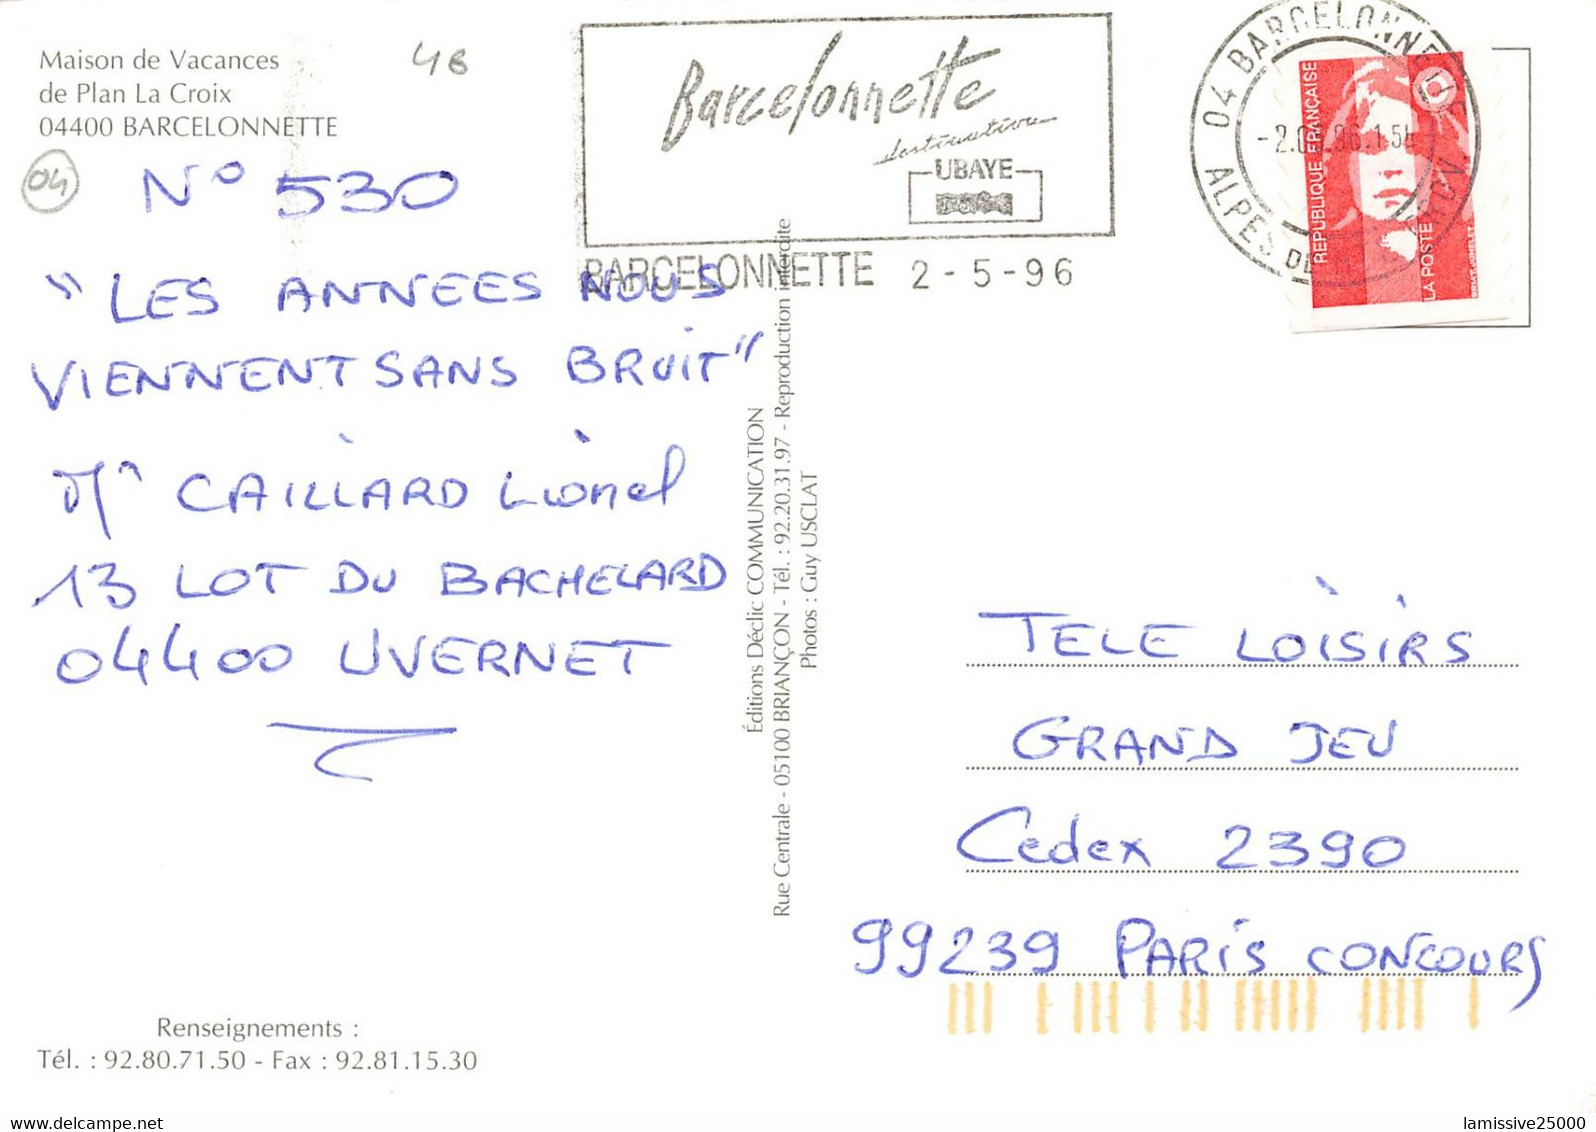 Maison de Vacances
de Plan La Croix
04400 BARCELONNETTE
48
04
N° 530
"LES ANNEES NOUS
VIENNENT SANS BRUIT"
Mr CAILLARD Lionel
13 LOT DU BACHELARD
04400 UVERNET
Renseignements :
Tél. : 92.80.71.50 - Fax : 92.81.15.30
Barcelonnette
destination
UBAYE
BARCELONNETTE 2-5-96
04 BARCELONNETTE
ALPES DE
REPUBLIQUE FRANÇAISE
LA POSTE
Éditions Déclic COMMUNICATION
Rue Centrale - 05100 BRIANÇON - Tél. : 92.20.31.97 - Reproduction interdite
Photos : Guy USCLAT
TELE LOISIRS
GRAND JEU
Cedex 2390
99239 PARIS CONCOURS
lamissive25000